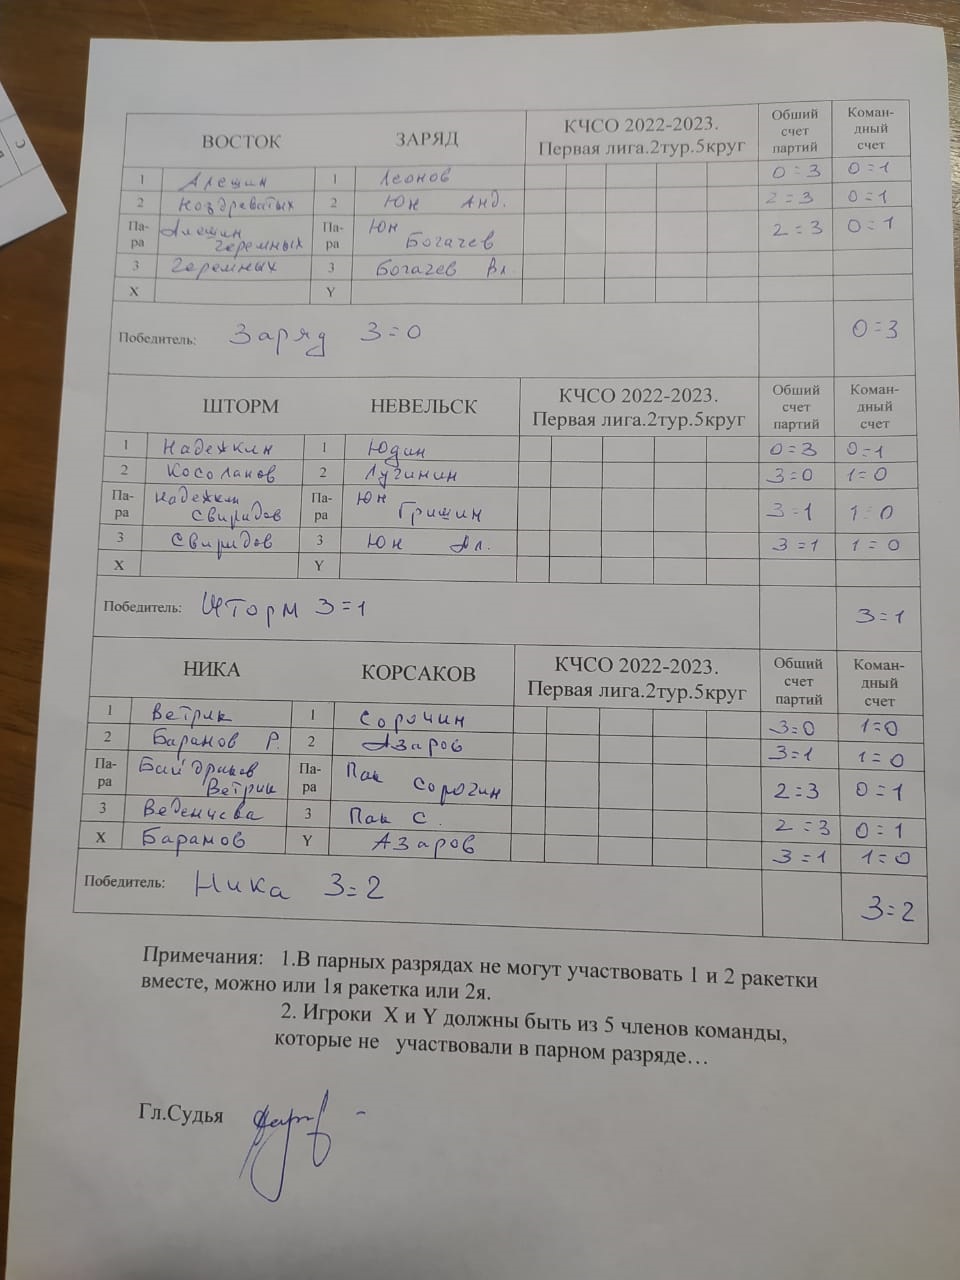 ВОСТОК ЗАРЯД КЧСО 2022-2023. Первая лига.2тур.5круг Общий счет партий Коман-дный счет
1 Алешин 1 Леонов 0=3 0=1
2 Ноздреватых 2 Юн Анд. 2=3 0=1
Па-ра Алешин Черемных Па-ра Юн Богачев 2=3 0=1
3 Черемных 3 Богачев Вл.
X Y
Победитель: Заряд 3=0 0=3
ШТОРМ НЕВЕЛЬСК КЧСО 2022-2023. Первая лига.2тур.5круг Общий счет партий Коман-дный счет
1 Надежкин 1 Юдин 0=3 0=1
2 Косолапов 2 Лучинин 3=0 1=0
Па-ра Надежкин Свиридов Па-ра Юн Гришин 3=1 1=0
3 Свиридов 3 Юн Ал. 3=1 1=0
X Y
Победитель: Шторм 3=1 3=1
НИКА КОРСАКОВ КЧСО 2022-2023. Первая лига.2тур.5круг Общий счет партий Коман-дный счет
1 Ветрик 1 Сорочин 3=0 1=0
2 Баранов Р. 2 Азаров 3=1 1=0
Па-ра Ветрик Па-ра Пак Сорочин 2=3 0=1
3 3 Пак С. 2=3 0=1
X Баранов Y Азаров 3=1 1=0
Победитель: Ника 3=2 3=2
Примечания: 1.В парных разрядах не могут участвовать 1 и 2 ракетки
вместе, можно или 1я ракетка или 2я.
2. Игроки X и Y должны быть из 5 членов команды,
которые не участвовали в парном разряде…
Гл.Судья